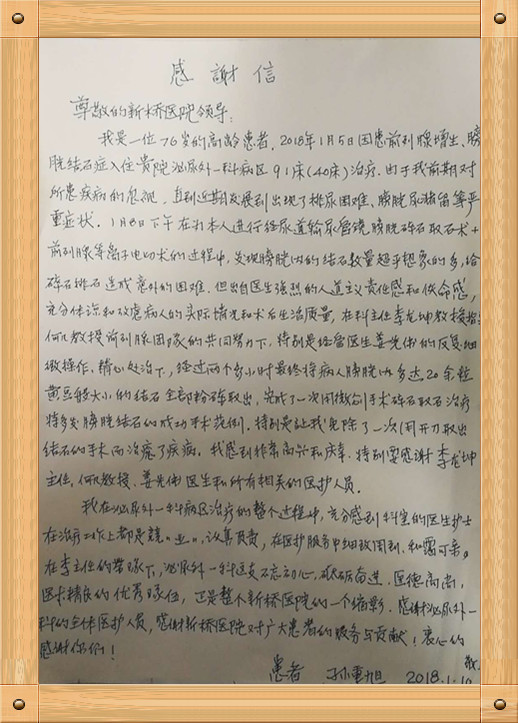 感謝信
尊敬的新桥医院领导：
我是一位76岁的高龄患者，2018年1月5日因患前列腺增生、膀
胱结石症入住贵院泌尿外一科病区91床（40床）治疗。由于我前期对
所患疾病的忽视，直到近期发展到出现了排尿困难、膀胱尿潴留等严
重症状。1月8日下午在对本人进行经尿道输尿管镜膀胱碎石取石术+
前列腺等离子电切术的过程中，发现膀胱内的结石数量超乎想象的多，给
碎石排石造成意外的困难，但出自医生强烈的人道主义责任感和使命感，
充分体谅和考虑病人的实际情况和术后生活质量，在科主任李龙坤教授指
何教授前列腺团队的共同努力下，特别是经管医生姜先伟的反复细
微操作，精心处治下，经过两个多小时最终将病人膀胱内多达20余粒
黄豆般大小的结石全部粉碎取出，完成了一次用微创手术碎石取石治疗
特多发膀胱结石的成功手术范例。特别是让我免除了一次开刀取出
结石的手术而治疗了疾病。我感到非常高兴和庆幸，特别要感谢李龙坤
主任、何教授、姜先伟医生和所有相关的医护人员。
我在泌尿外一科病区治疗的整个过程中，充分感到科室的医生护士
在治疗工作上都是兢兢业业，认真负责，在医护服务中细致周到，和蔼可亲。
在李主任的带领下，泌尿外一科医友不忘初心，砥砺奋进，医德高尚，
医术精良的优秀队伍，正是整个新桥医院的一个缩影。感谢泌尿外一
科的全体医护人员，感谢新桥医院对广大患者的服务与贡献！衷心的
感谢你们！
患者 孙重旭 敬
2018.1.10